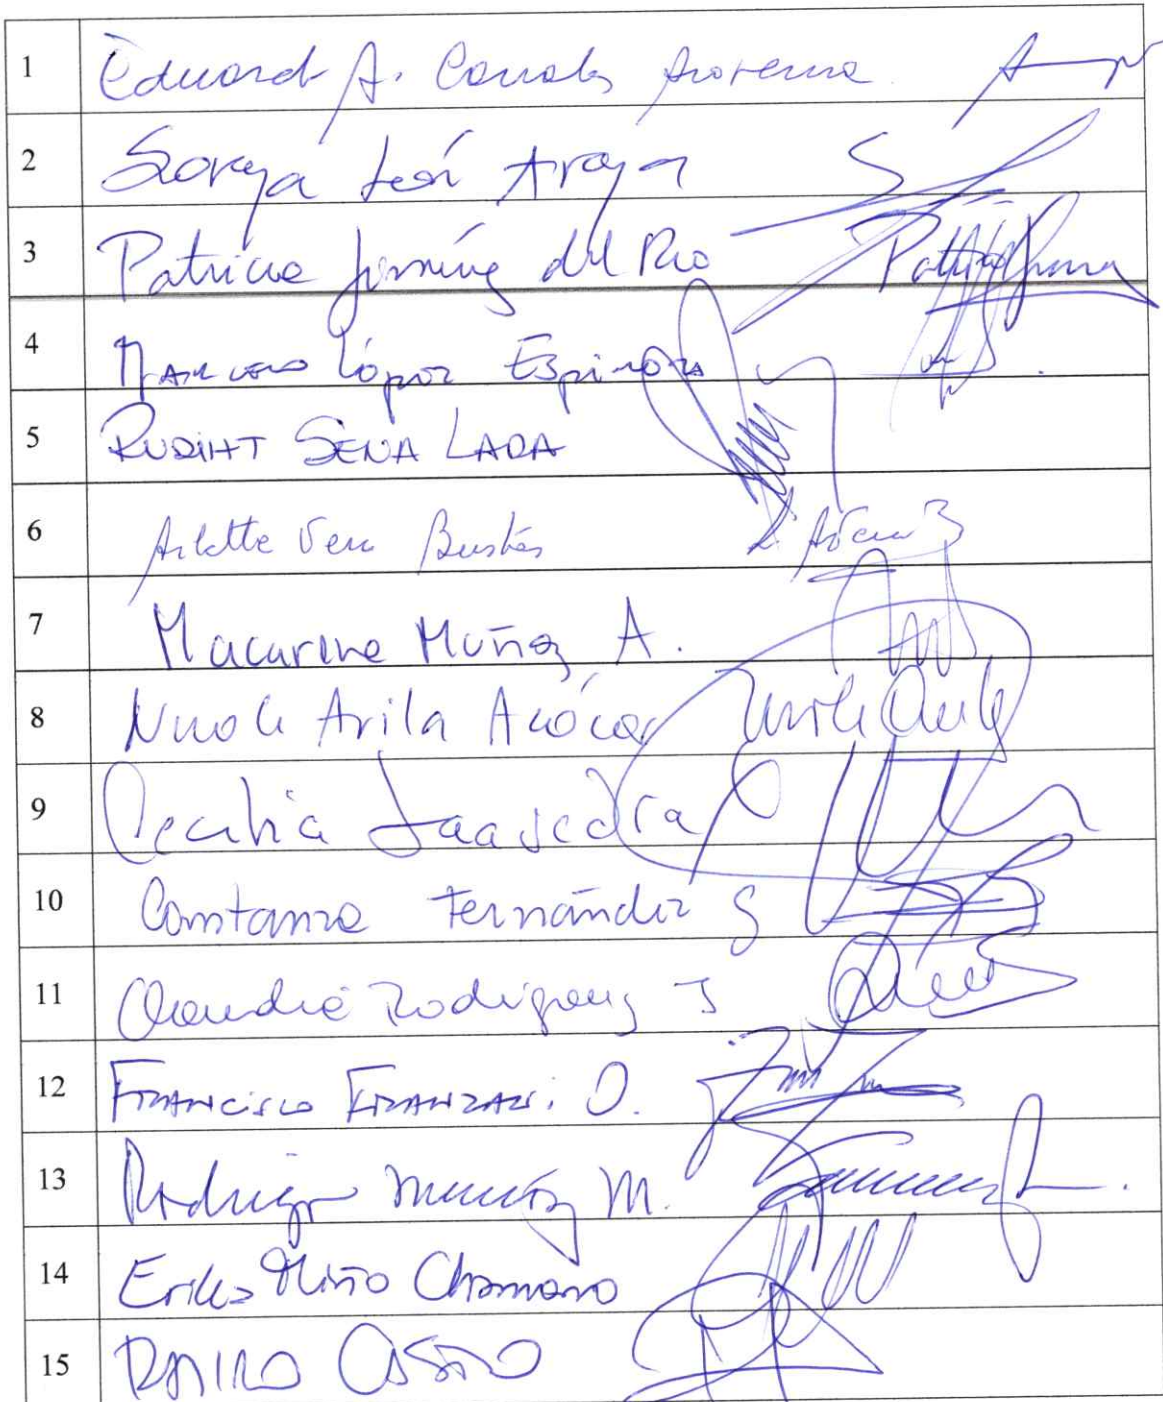 1 Eduardo A. Canales
2 Soraya León Araya
3 Patricia Jiménez del Rio
4 Marcelo López Espinoza
5 RUDIHT SENA LARA
6 Arlette Vera Bustos
7 Macarena Muñoz A.
8 Nicole Avila
9 Cecilia Saavedra
10 Constanza Fernández S
11 Claudia Rodríguez J
12 FRANCISCO O.
13 Rodrigo Muñoz M.
14 Erika Miño Chamorro
15 CASTRO